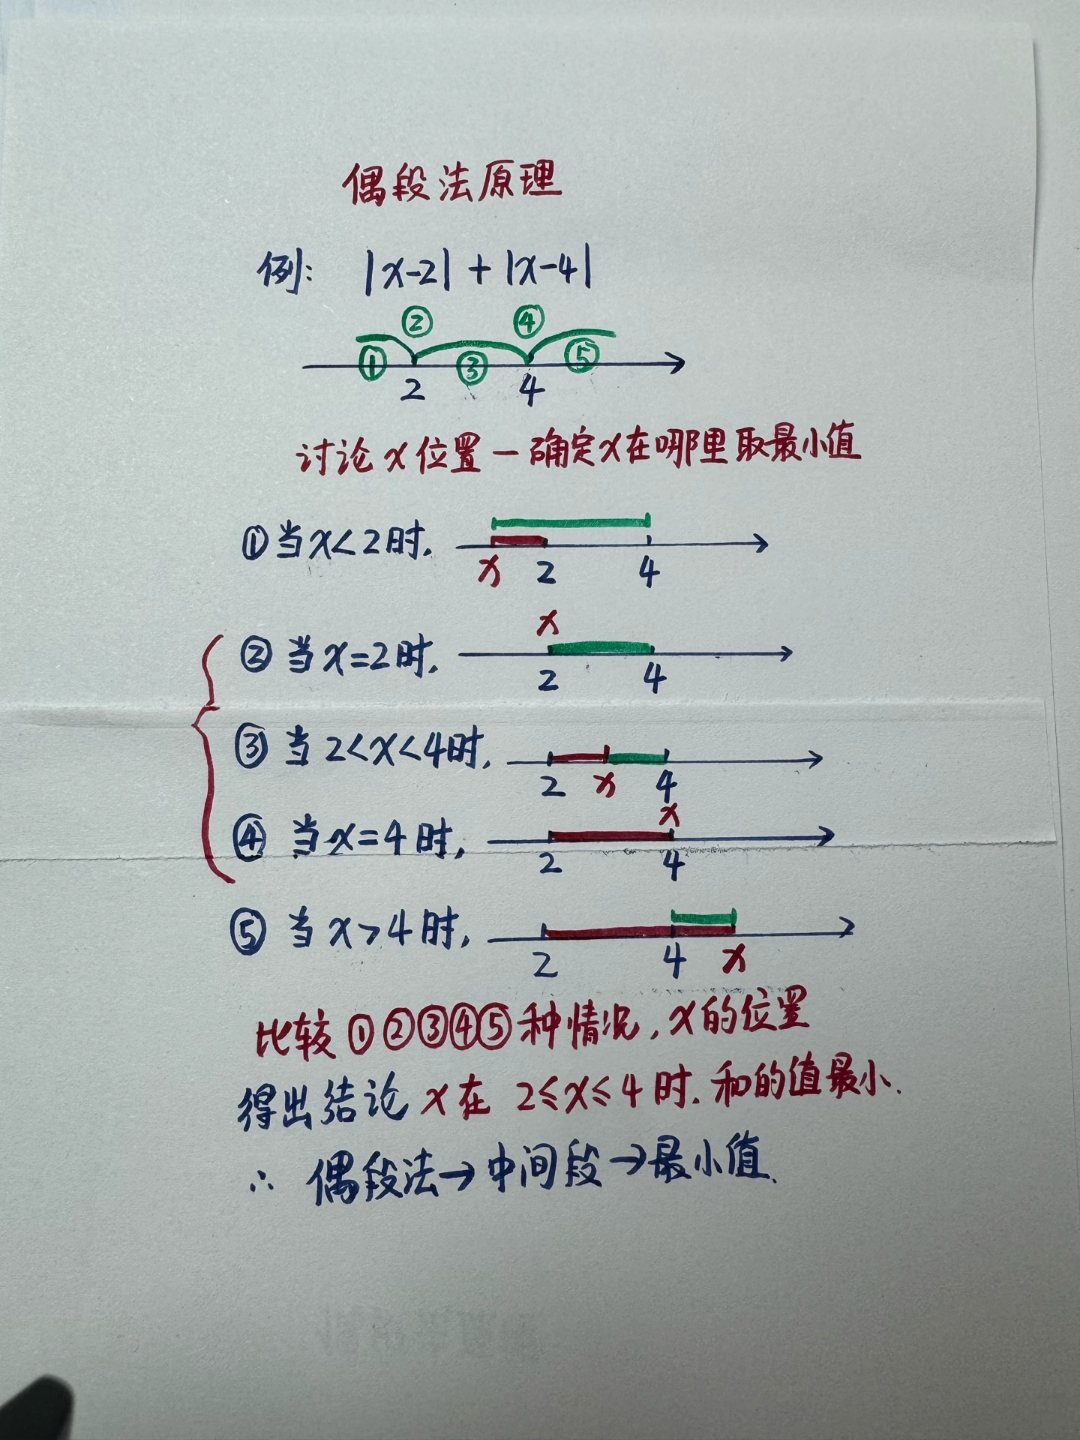 偶段法原理
例: |x-2| + |x-4|
② ④
① ③ ⑤
2 4
讨论x位置一确定x在哪里取最小值
①当x<2时,
x 2 4
x
②当x=2时,
2 4
③当2<x<4时,
2 x 4
x
④当x=4时,
2 4
⑤当x>4时,
2 4 x
比较①②③④⑤种情况,x的位置
得出结论x在 2≤x≤4时.和的值最小.
∴ 偶段法→中间段→最小值.